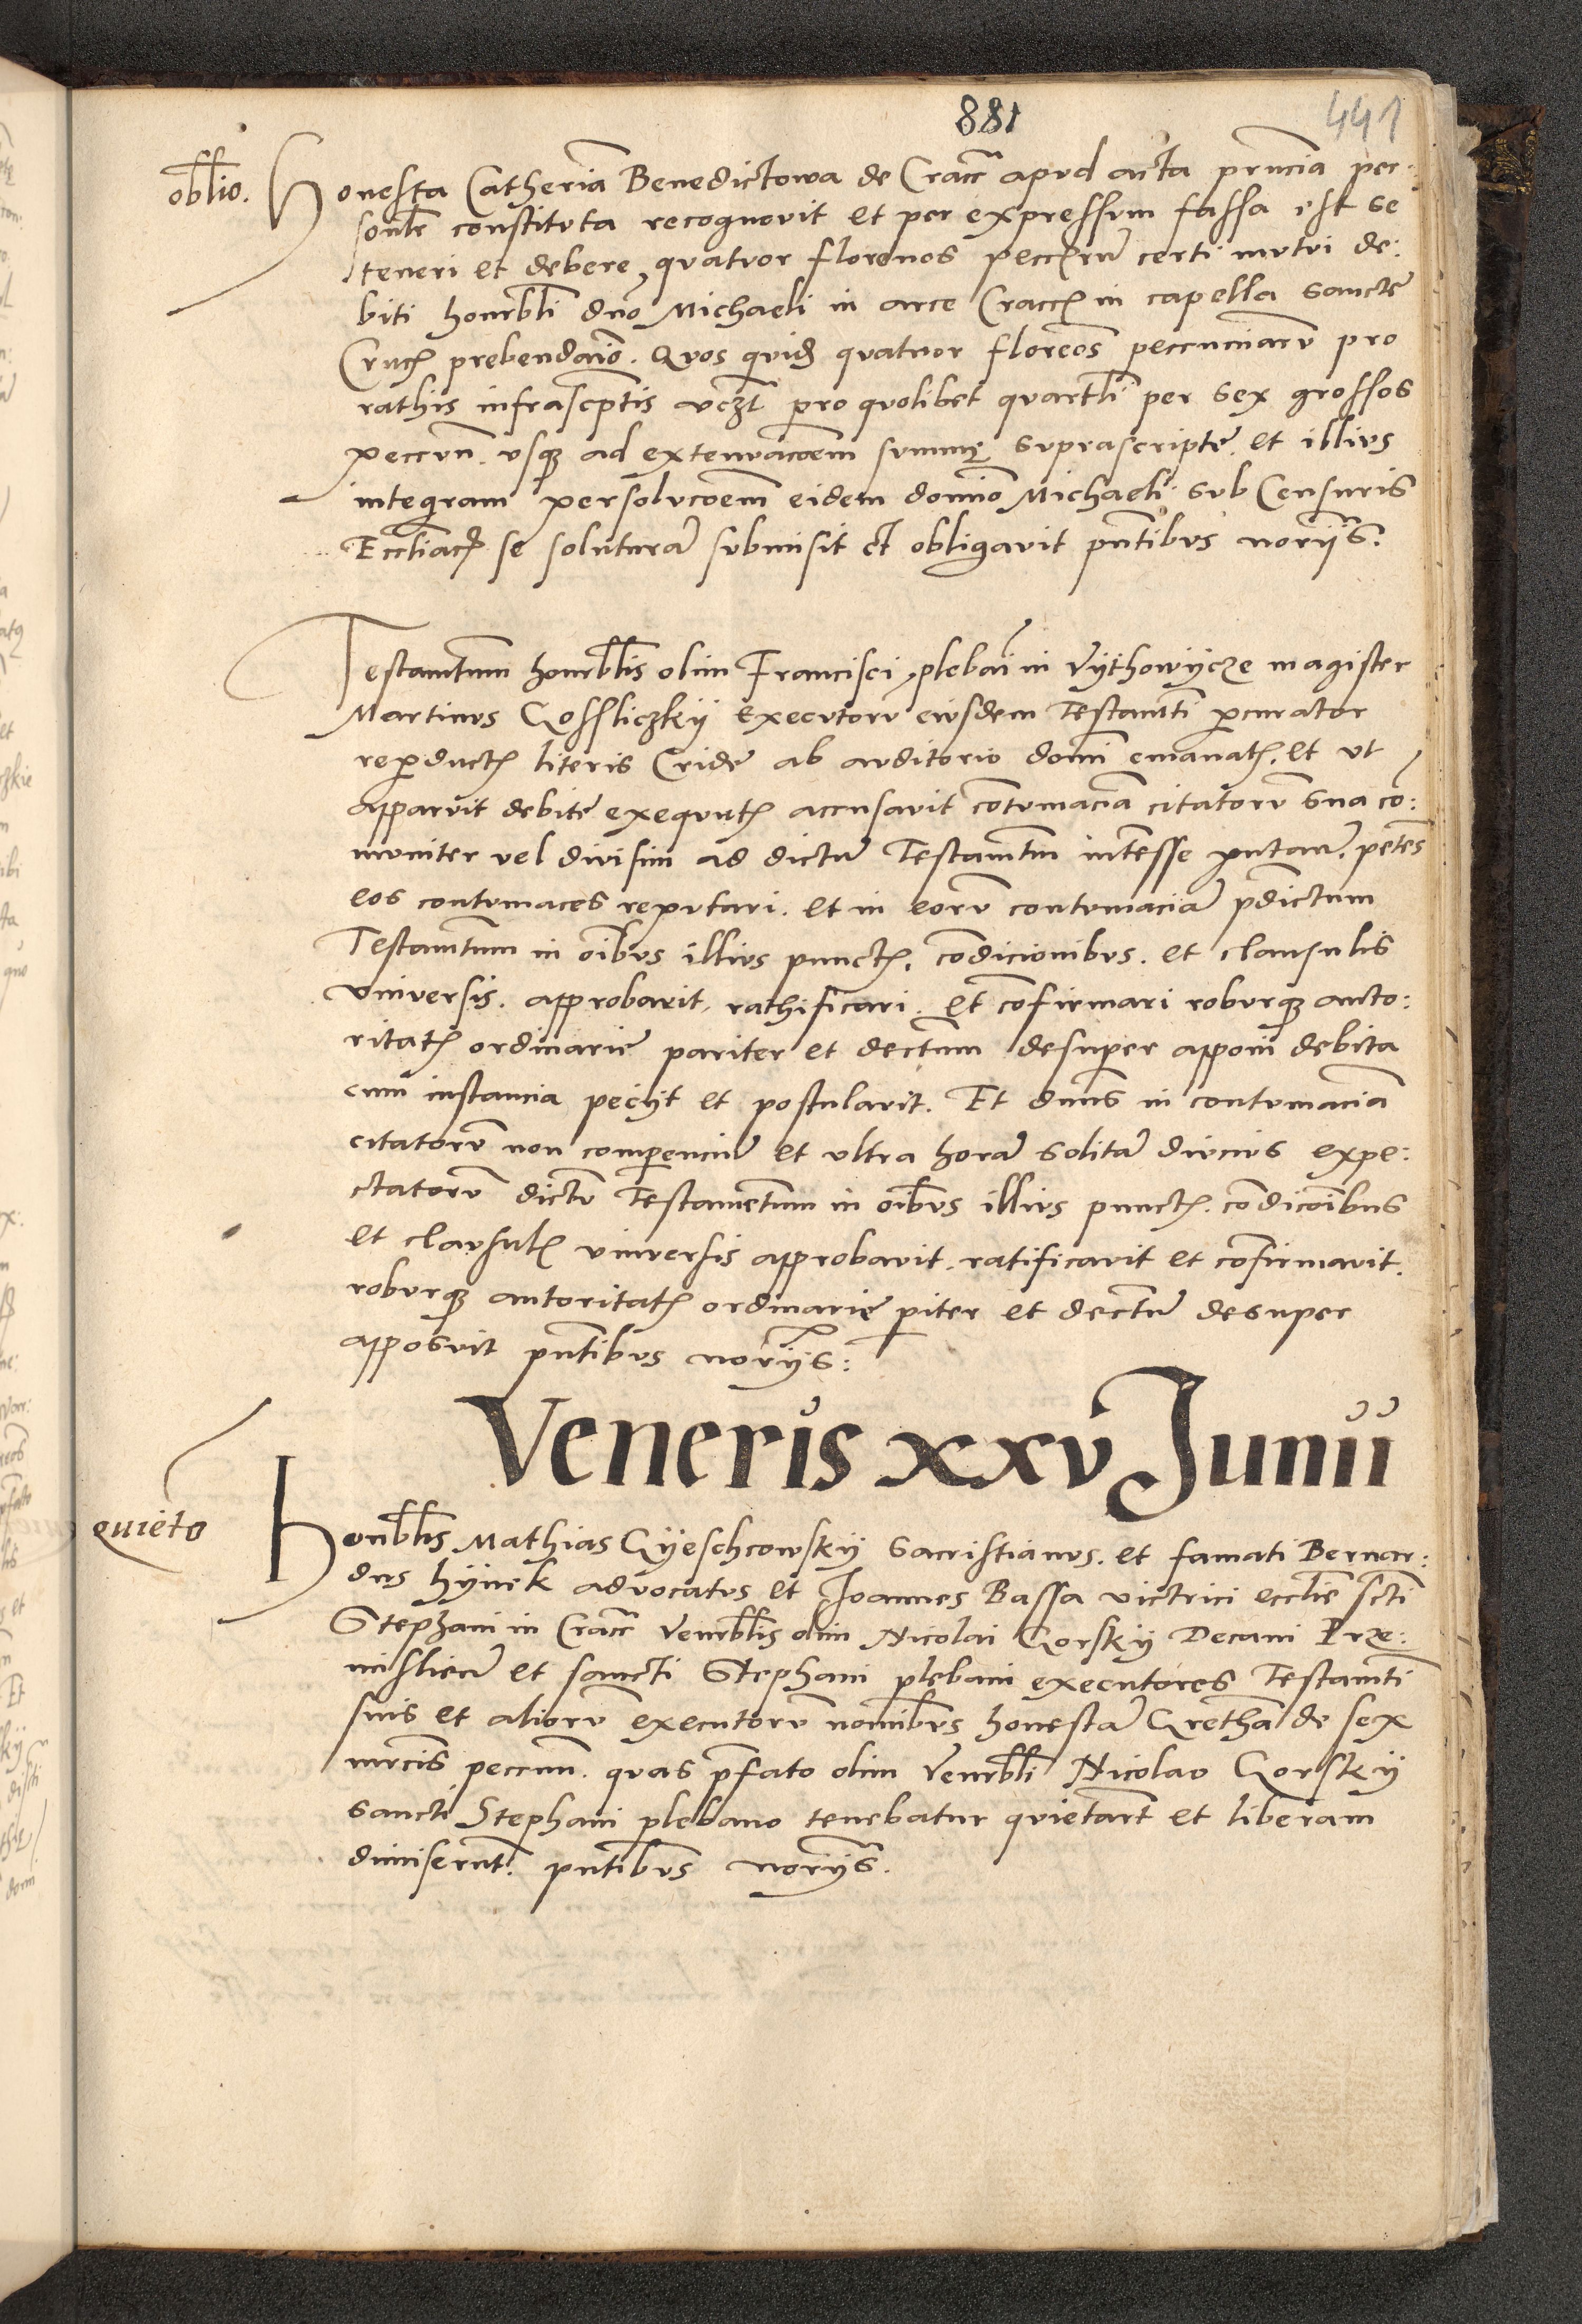 881
441
oblio. Honesta Catherina Benedictowa de Cracc apud acta prncia per-
sonlr constituta recognovit et per expressum fassa est se
teneri et debere quatuor florenos peccrum certi mutui de:
biti honrbli dno Michaeli in arce Cracc in capella Sancte
Crucs prebendario. Quos quid quatuor floreos peccuniaru pro
rathis infrascptis vczt pro quolibet quartli per sex grossos
peccun. usq ad extenuacoem summe suprascripte et illius
integram persolucoem eidem domino Michaeli sub Censuris
Eccliacs se soluturam submisit et obligavit pntibus noriis.
Testamtum honrblis olim Francisci plebani in Vythowycze magister
Martinus Gossliczkij executoru eiusdem Testamti pcurator
repductis literis Cride ab auditorio domi emanats. et ut
apparuit debite exequuts accusavit contumaciam citatoru sua co:
muniter vel divisim ad dictum Testamtum intesse putan. petes
eos contumaces reputari. et in eoru contumaciam pdictum
Testamtum in oibus illius puncts, condicionibus. et clausulis
universis. approbavit, rathificari. et confirmari roburq aucto:
ritats ordinarie pariter et dectum desuper apponi debita
cum instancia peciit et postulavit. Et dnus in contumaciam
citatoru non comperencium et ultra horam solitam diucius expe:
ctatoru dictu Testamentum in oibus illius puncts. condicoibus
et clausuls universis approbavit. ratificavit et confirmavit.
roburq autoritats ordinarie piter et dectum desuper
apposuit pntibus noriis:
Veneris xxv Junii
quieto Honblis Mathias Gyeschcowskij Sacristianus. et famati Bernar:
dus Hynek advocatus et Joannes Bassa victrici ecclie scti
Stephani in Cracc Venrblis olim Nicolai Gorskij Decani Prze:
mislien et sancti Stephani plebani executores Testamti
suis et alioru executoru nomibus honestam Gretham de sex
mrcis peccun. quas pfato olim Venrbli Nicolao Gorskij
Sancti Stephani plebano tenebatur quietart et liberam
dimiserut. pntibus noriis.